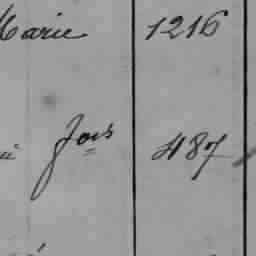 Marie 1216
Jos 487